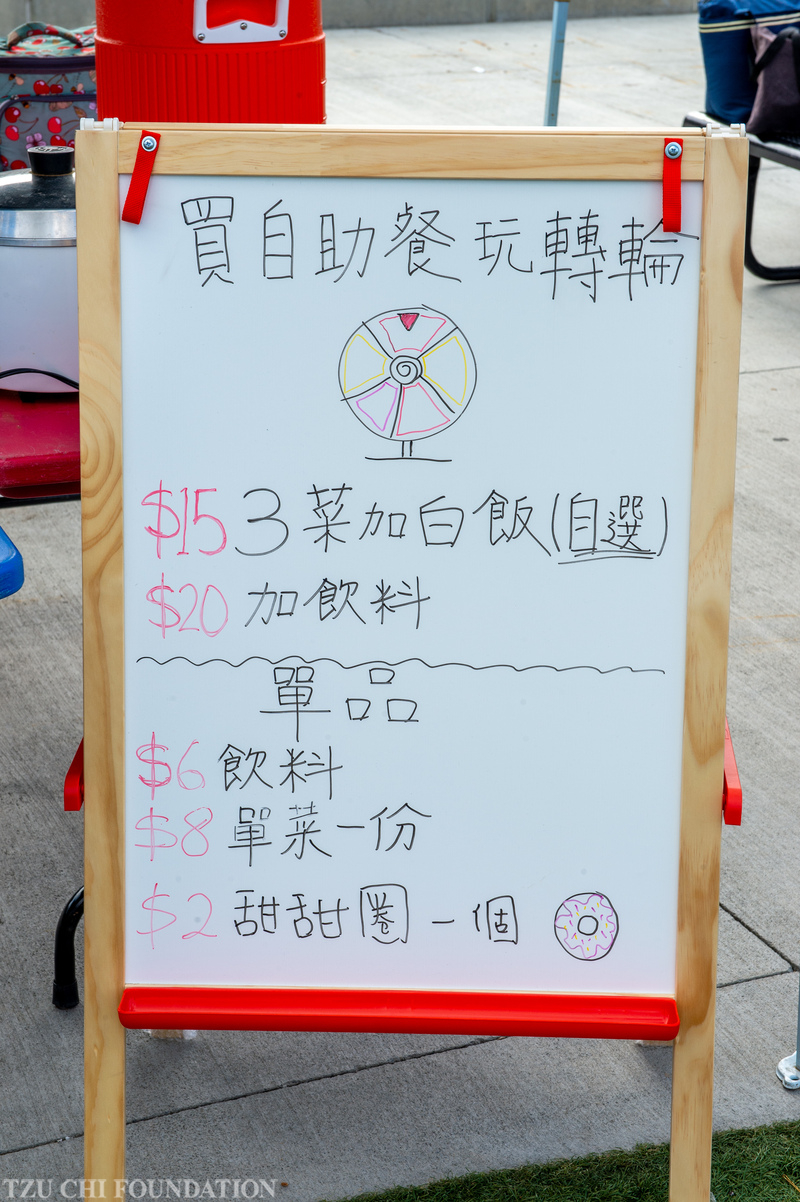 買自助餐玩轉輪
$15 3菜加白飯(自選)
$20 加飲料
單品
$6 飲料
$8 單菜一份
$2 甜甜圈一個
TZU CHI FOUNDATION